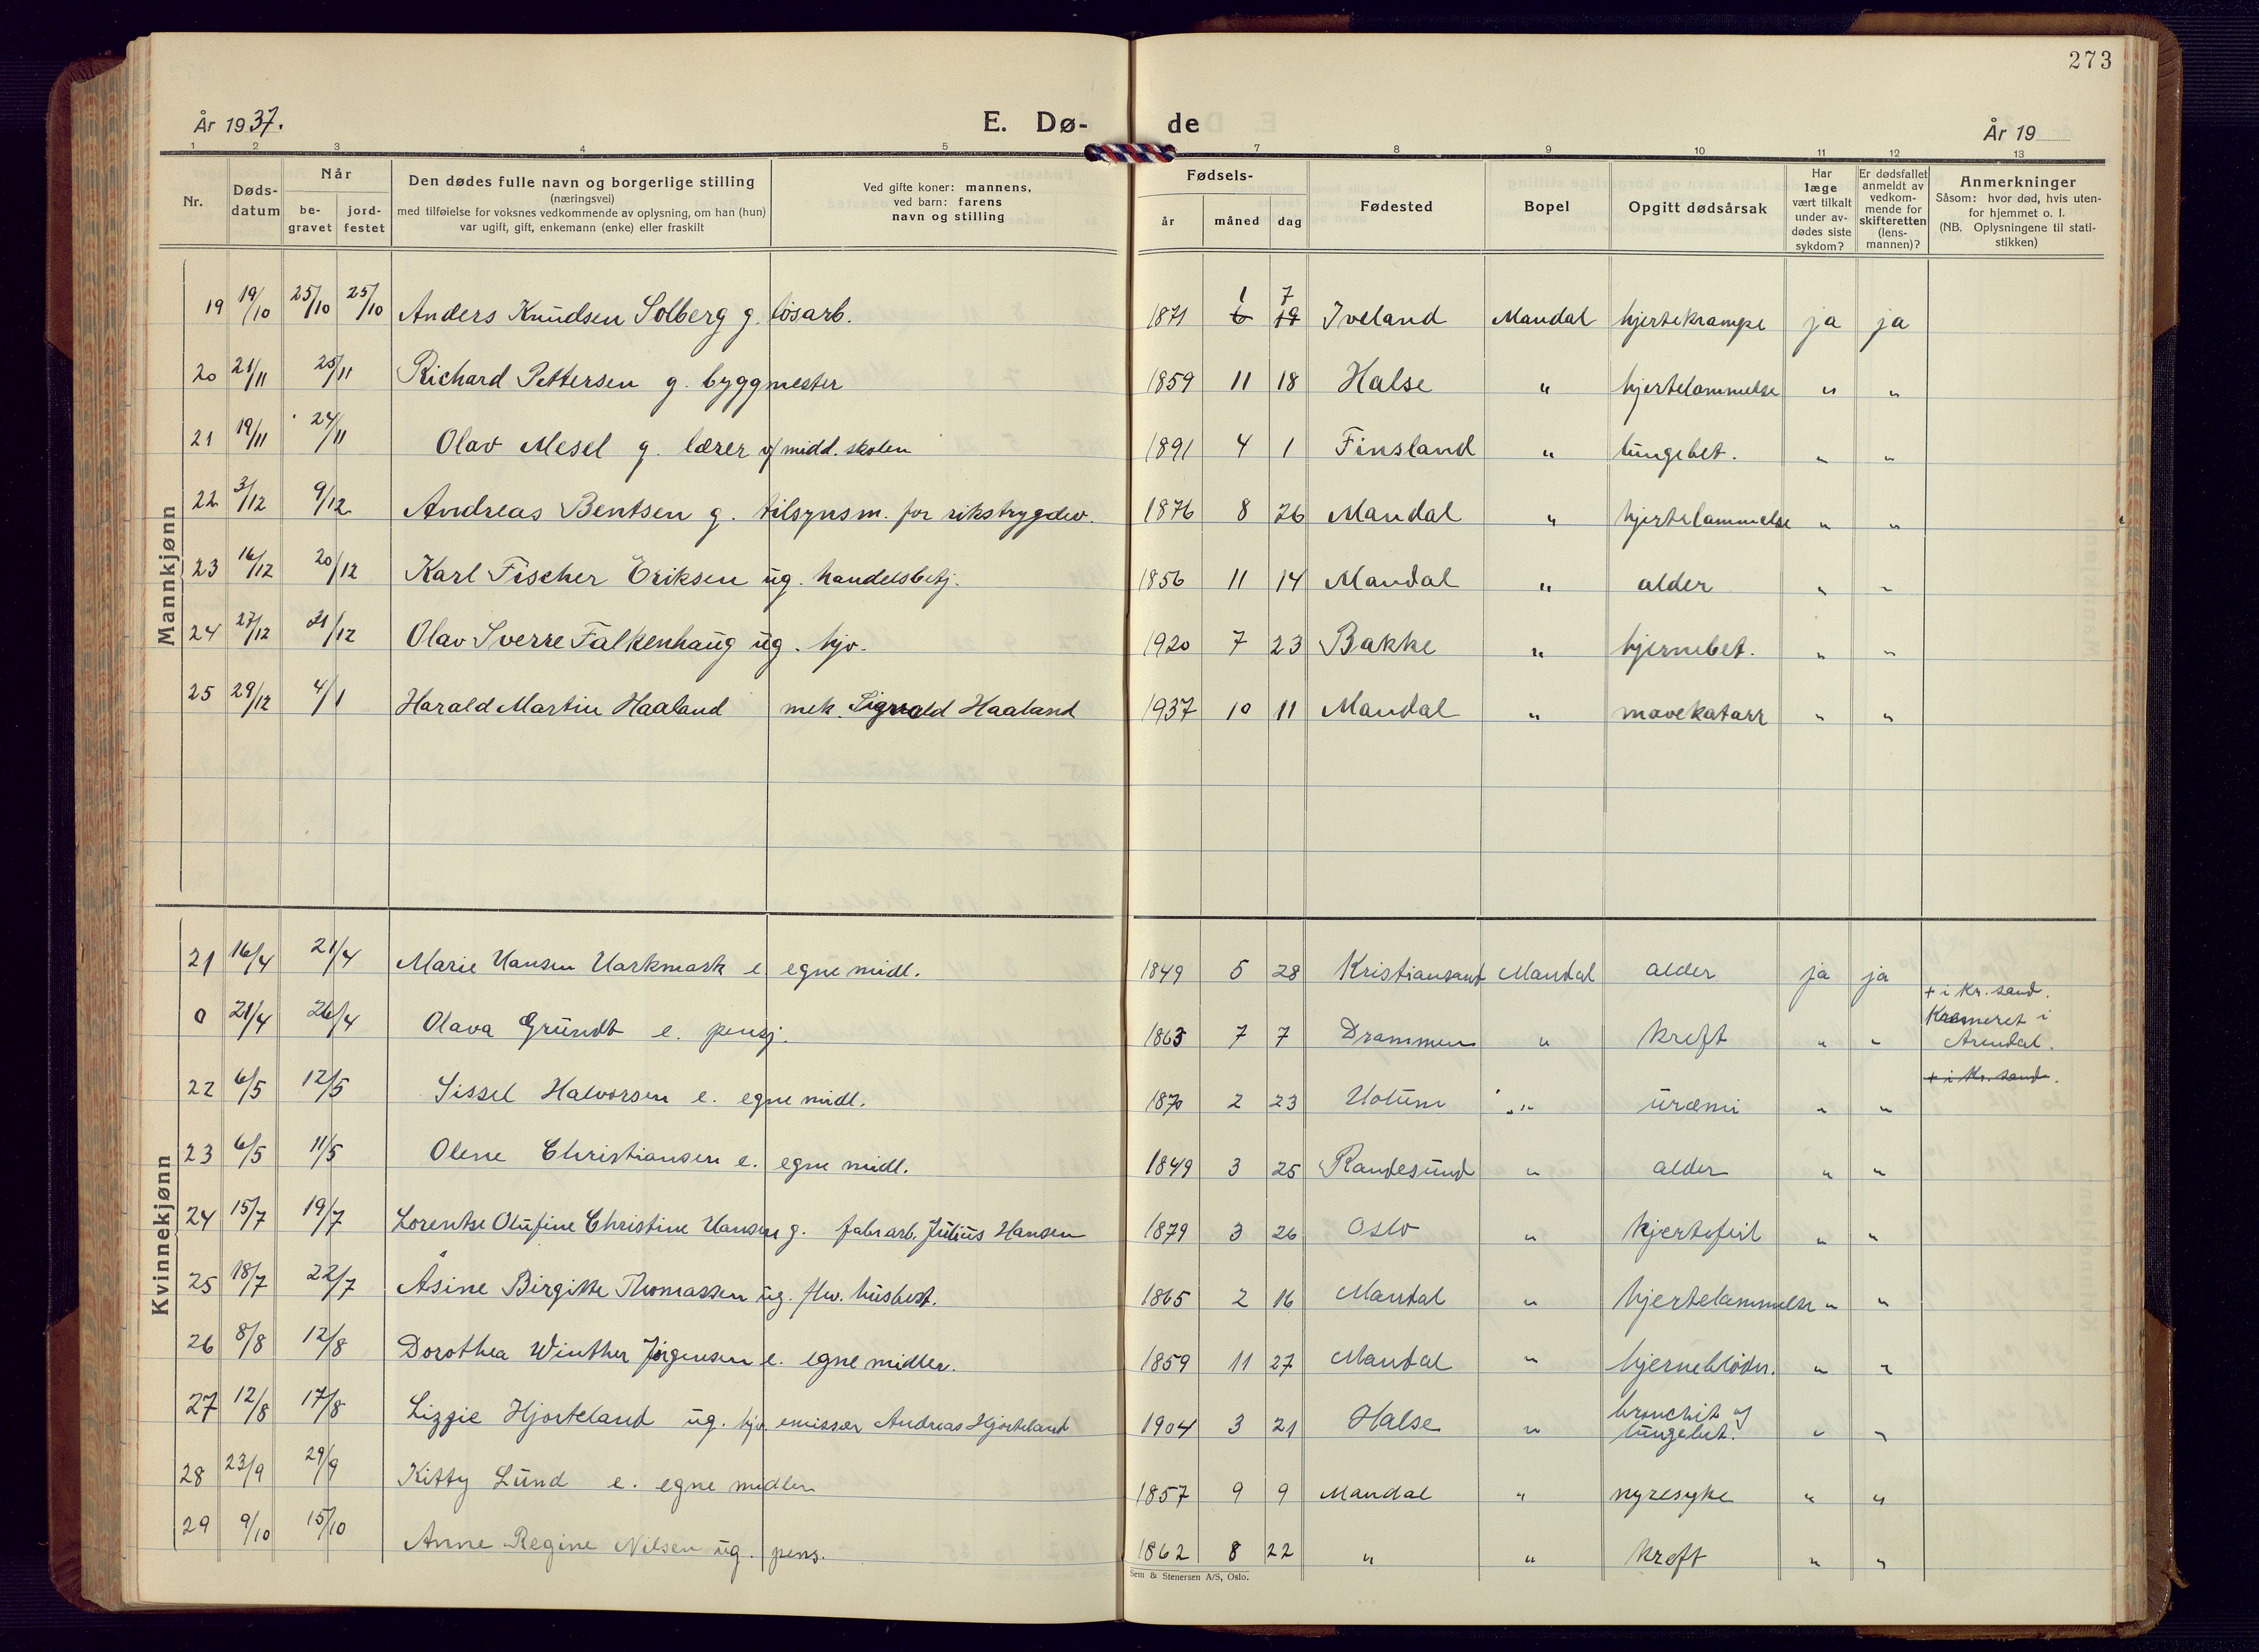 273
År 1937.
E. Dø-
de
År 19
1 2 3 4 5 7 8 9 10 11 12 13
Nr.
Døds-
datum
Når
be-
gravet
jord-
festet
Den dødes fulle navn og borgerlige stilling
(næringsvei)
med tilføielse for voksnes vedkommende av oplysning, om han (hun)
var ugift, gift, enkemann (enke) eller fraskilt
Ved gifte koner: mannens,
ved barn: farens
navn og stilling
Fødsels-
år måned dag
Fødested
Bopel
Opgitt dødsårsak
Har
læge
vært tilkalt
under av-
dødes siste
sykdom?
Er dødsfallet
anmeldt av
vedkom-
mende for
skifteretten
(lens-
mannen)?
Anmerkninger
Såsom: hvor død, hvis uten-
for hjemmet o. l.
(NB. Oplysningene til stati-
stikken)
Mannkjønn
1 7
19 19/10 25/10 25/10 Anders Knudsen Solberg g. løsarb. 1871 6 19 Iveland Mandal hjertekrampe ja ja
20 21/11 25/11 Richard Pettersen g. byggmester 1859 11 18 Halse " hjertelammelse " "
21 19/11 24/11 Olav Mesel g. lærer v/ midd. skolen 1891 4 1 Finsland " lungebet. " "
22 3/12 9/12 Andreas Bentsen g. tilsynsm. for rikstrygdev. 1876 8 26 Mandal " hjertelammelse " "
23 16/12 20/12 Karl Fischer Eriksen ug. handelsbetj. 1856 11 14 Mandal " alder " "
24 27/12 31/12 Olav Sverre Falkenhaug ug. hjv. 1920 7 23 Bakke " hjernebet. " "
25 29/12 4/1 Harald Martin Haaland mek. Sigvald Haaland 1937 10 11 Mandal " mavekatarr " "
Kvinnekjønn
21 16/4 21/4 Marie Hansen Harkmark e egne midl. 1849 5 28 Kristiansand Mandal alder ja ja
+ i Kr. sand.
0 21/4 26/4 Olava Grundt e. pensj. 1863 7 7 Drammen " kreft " " Kremeret i
Arendal.
+ i Kr. sand.
22 6/5 12/5 Sissel Halvorsen e. egne midl. 1870 2 23 Holum " uræmi " "
23 6/5 11/5 Olene Christiansen e. egne midl. 1849 3 25 Randesund " alder " "
24 15/7 19/7 Lorentse Olufine Christine Hansen g. fabr.arb. Julius Hansen 1879 3 26 Oslo " hjertefeil " "
25 18/7 22/7 Åsine Birgitte Thomassen ug. fhv. husbest. 1865 2 16 Mandal " hjertelammelse " "
26 8/8 12/8 Dorothea Winther Jørgensen e. egne midler. 1859 11 27 Mandal " hjerneblødn. " "
27 12/8 17/8 Lizzie Hjorteland ug. hjv. emissær Andreas Hjorteland 1904 3 21 Halse " bronchit og
lungebet. " "
28 23/9 29/9 Kitty Lund e. egne midler 1857 9 9 Mandal " nyresyke " "
29 9/10 15/10 Anne Regine Nilsen ug. pens. 1862 8 22 " " kreft " "
Sem & Stenersen A/S, Oslo.